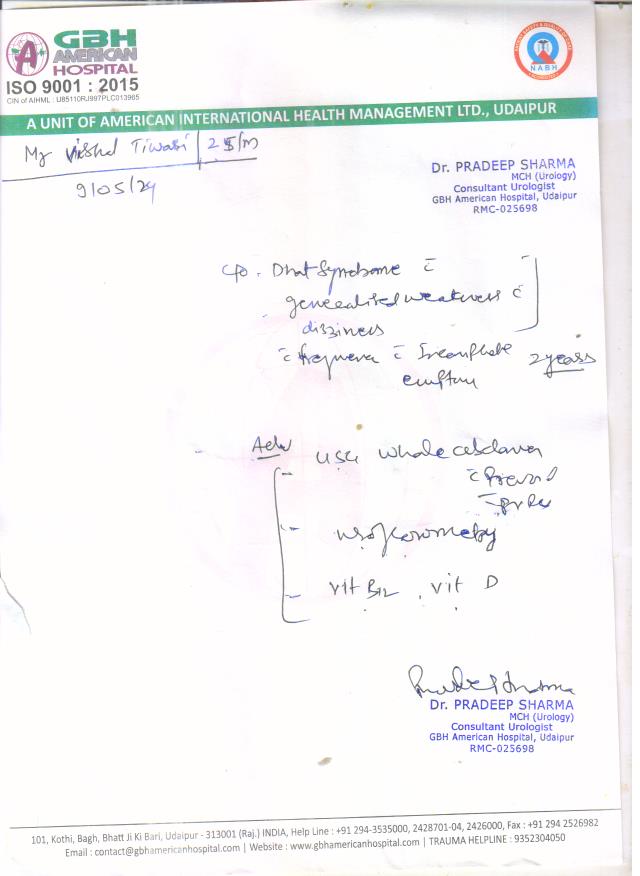 GBH
AMERICAN
HOSPITAL
ISO 9001 : 2015
CIN of AIHML : U85110RJ997PLC013965
PATIENT SAFETY & QUALITY OF CARE
NABH
A UNIT OF AMERICAN INTERNATIONAL HEALTH MANAGEMENT LTD., UDAIPUR
Mr Vishal Tiwari | 25/M
9/05/24
Dr. PRADEEP SHARMA
MCH (Urology)
Consultant Urologist
GBH American Hospital, Udaipur
RMC-025698
C/o . Dhat Syndrome c̄
generalised weakness c̄
dizziness
c̄ c̄ Incomplete 2 years
Adv USG Whole abdomen
c̄ Prevoid
- PVRU
- Uroflowmetry
- Vit B12 , Vit D
Dr. PRADEEP SHARMA
MCH (Urology)
Consultant Urologist
GBH American Hospital, Udaipur
RMC-025698
101, Kothi, Bagh, Bhatt Ji Ki Bari, Udaipur - 313001 (Raj.) INDIA, Help Line : +91 294-3535000, 2428701-04, 2426000, Fax : +91 294 2526982
Email : contact@gbhamericanhospital.com | Website : www.gbhamericanhospital.com | TRAUMA HELPLINE : 9352304050